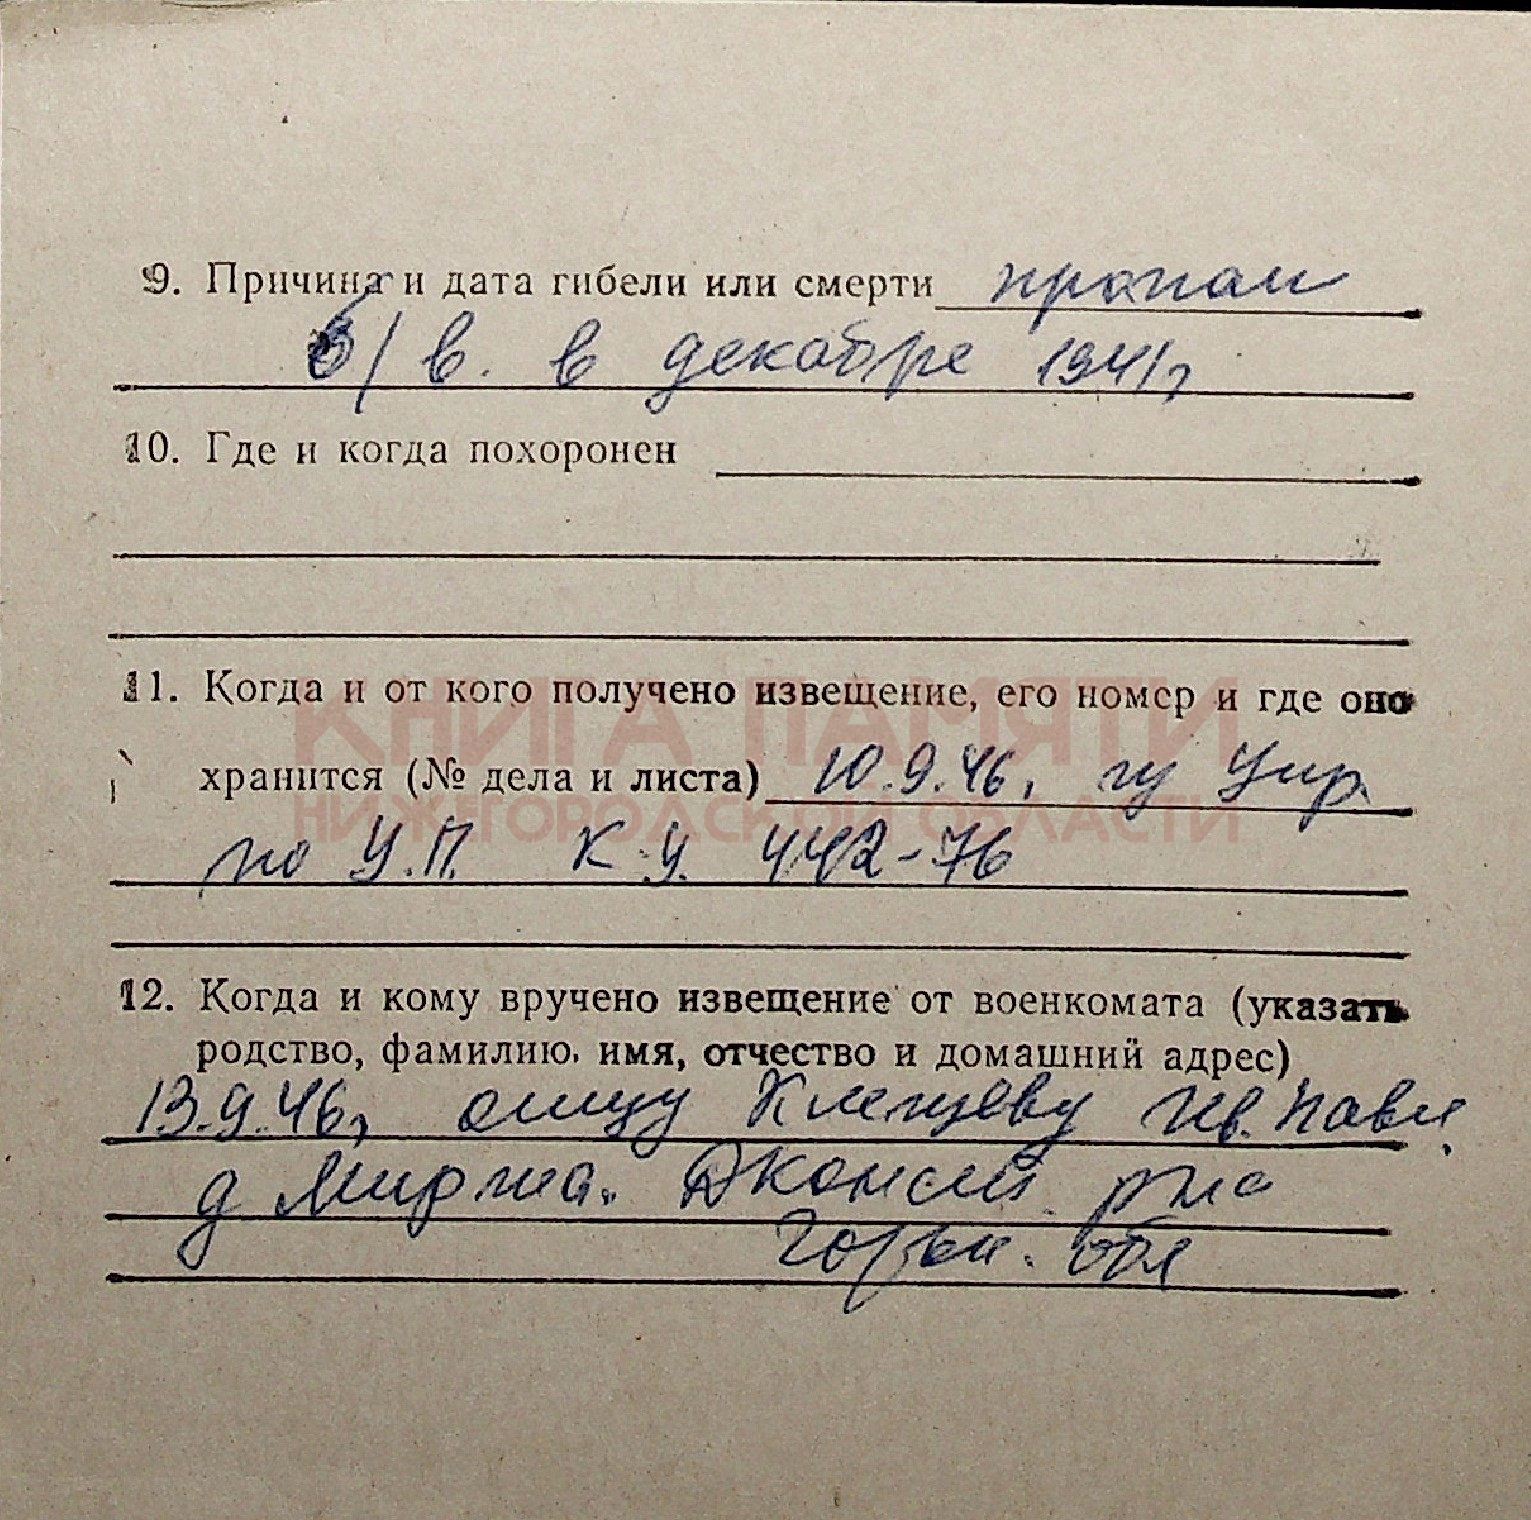 9. Причина и дата гибели или смерти пропал
б/в. в декабре 1941г
10. Где и когда похоронен
11. Когда и от кого получено извещение, его номер и где оно
КНИГА ПАМЯТИ
хранится (№ дела и листа) 10.9.46, гу Упр.
НИЖЕГОРОДСКОЙ ОБЛАСТИ
по У.П. К.У. 442-76
12. Когда и кому вручено извещение от военкомата (указать
родство, фамилию, имя, отчество и домашний адрес)
13.9.46г отцу Клепцеву Ив. Павл.
д Миржа.
Горьк. обл